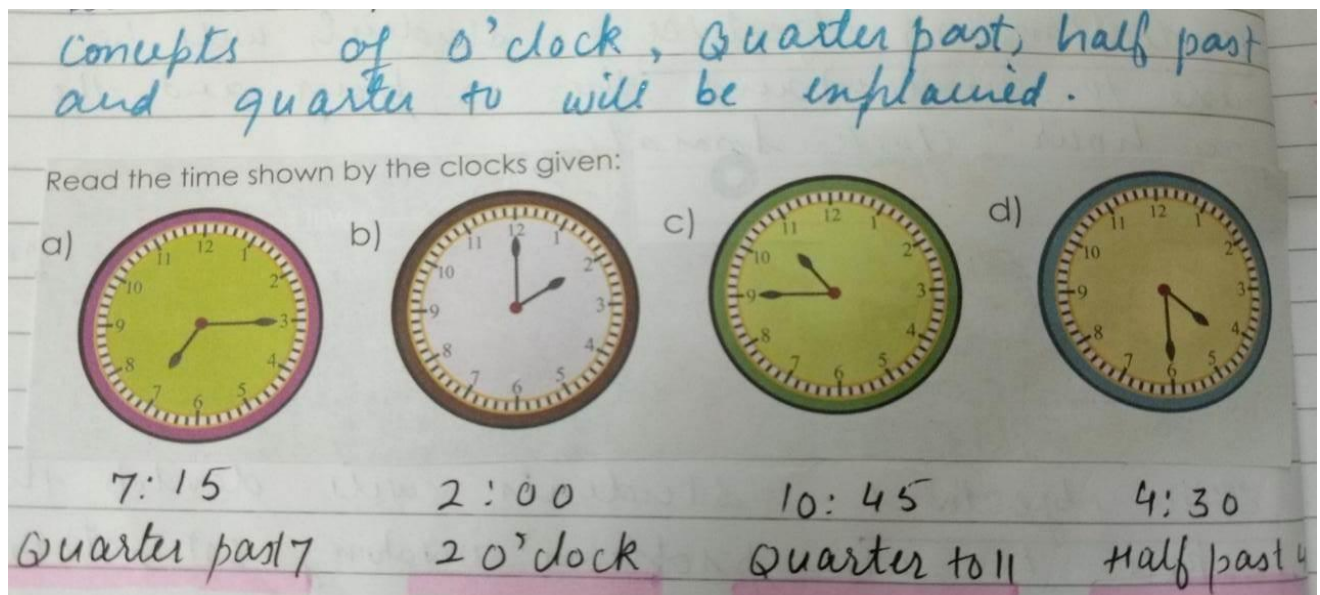 concepts of o'clock, Quarter past, half past
and quarter to will be explained.
Read the time shown by the clocks given:
a) b) c) d)
12 1 2 3 4 5 6 7 8 9 10 11
12 1 2 3 4 5 6 7 8 9 10 11
12 1 2 3 4 5 6 7 8 9 10 11
12 1 2 3 4 5 6 7 8 9 10 11
7:15 2:00 10:45 4:30
Quarter past 7 2 o'clock Quarter to 11 Half past 4